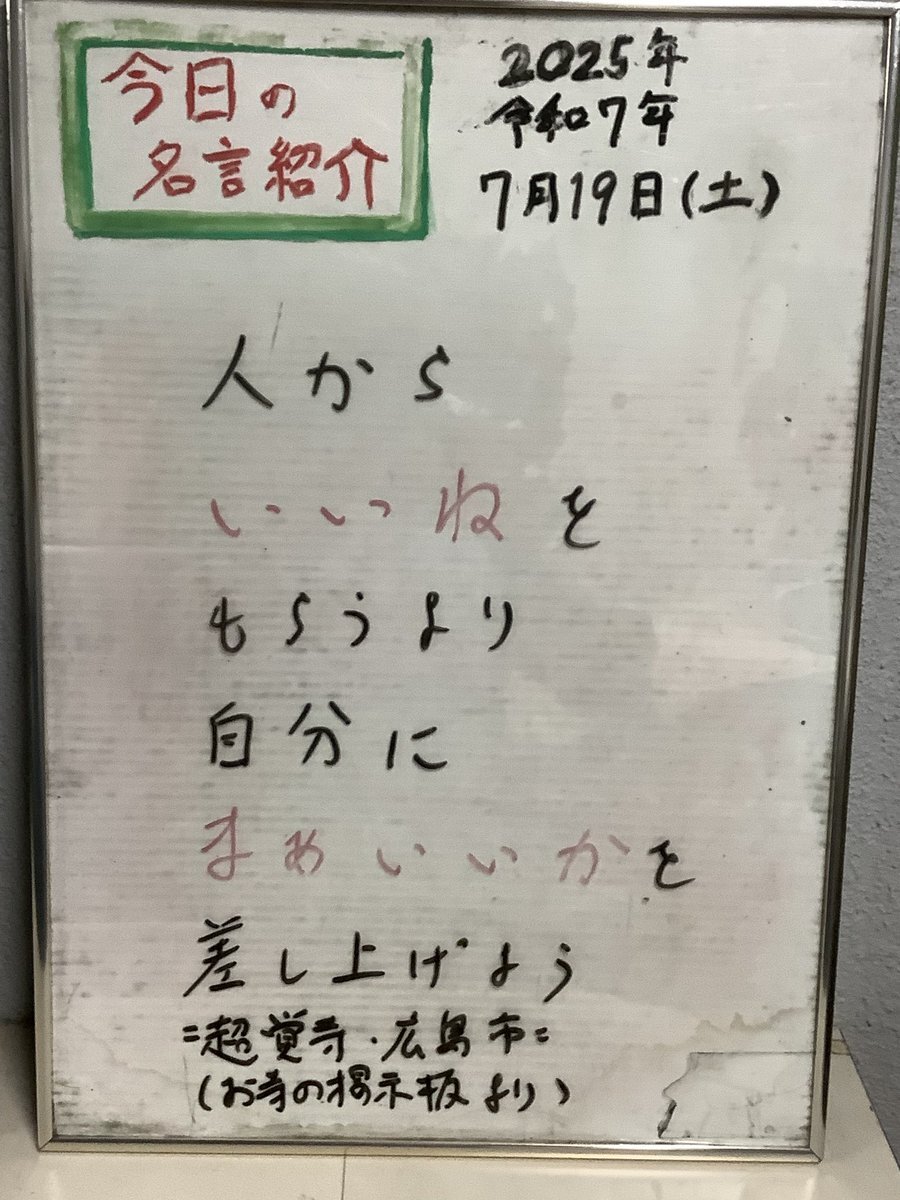 今日の
名言紹介
2025年
令和7年
7月19日(土)
人から
いいねを
もらうより
自分に
まあいいかを
差し上げよう
=超覚寺・広島市=
(お寺の掲示板より)